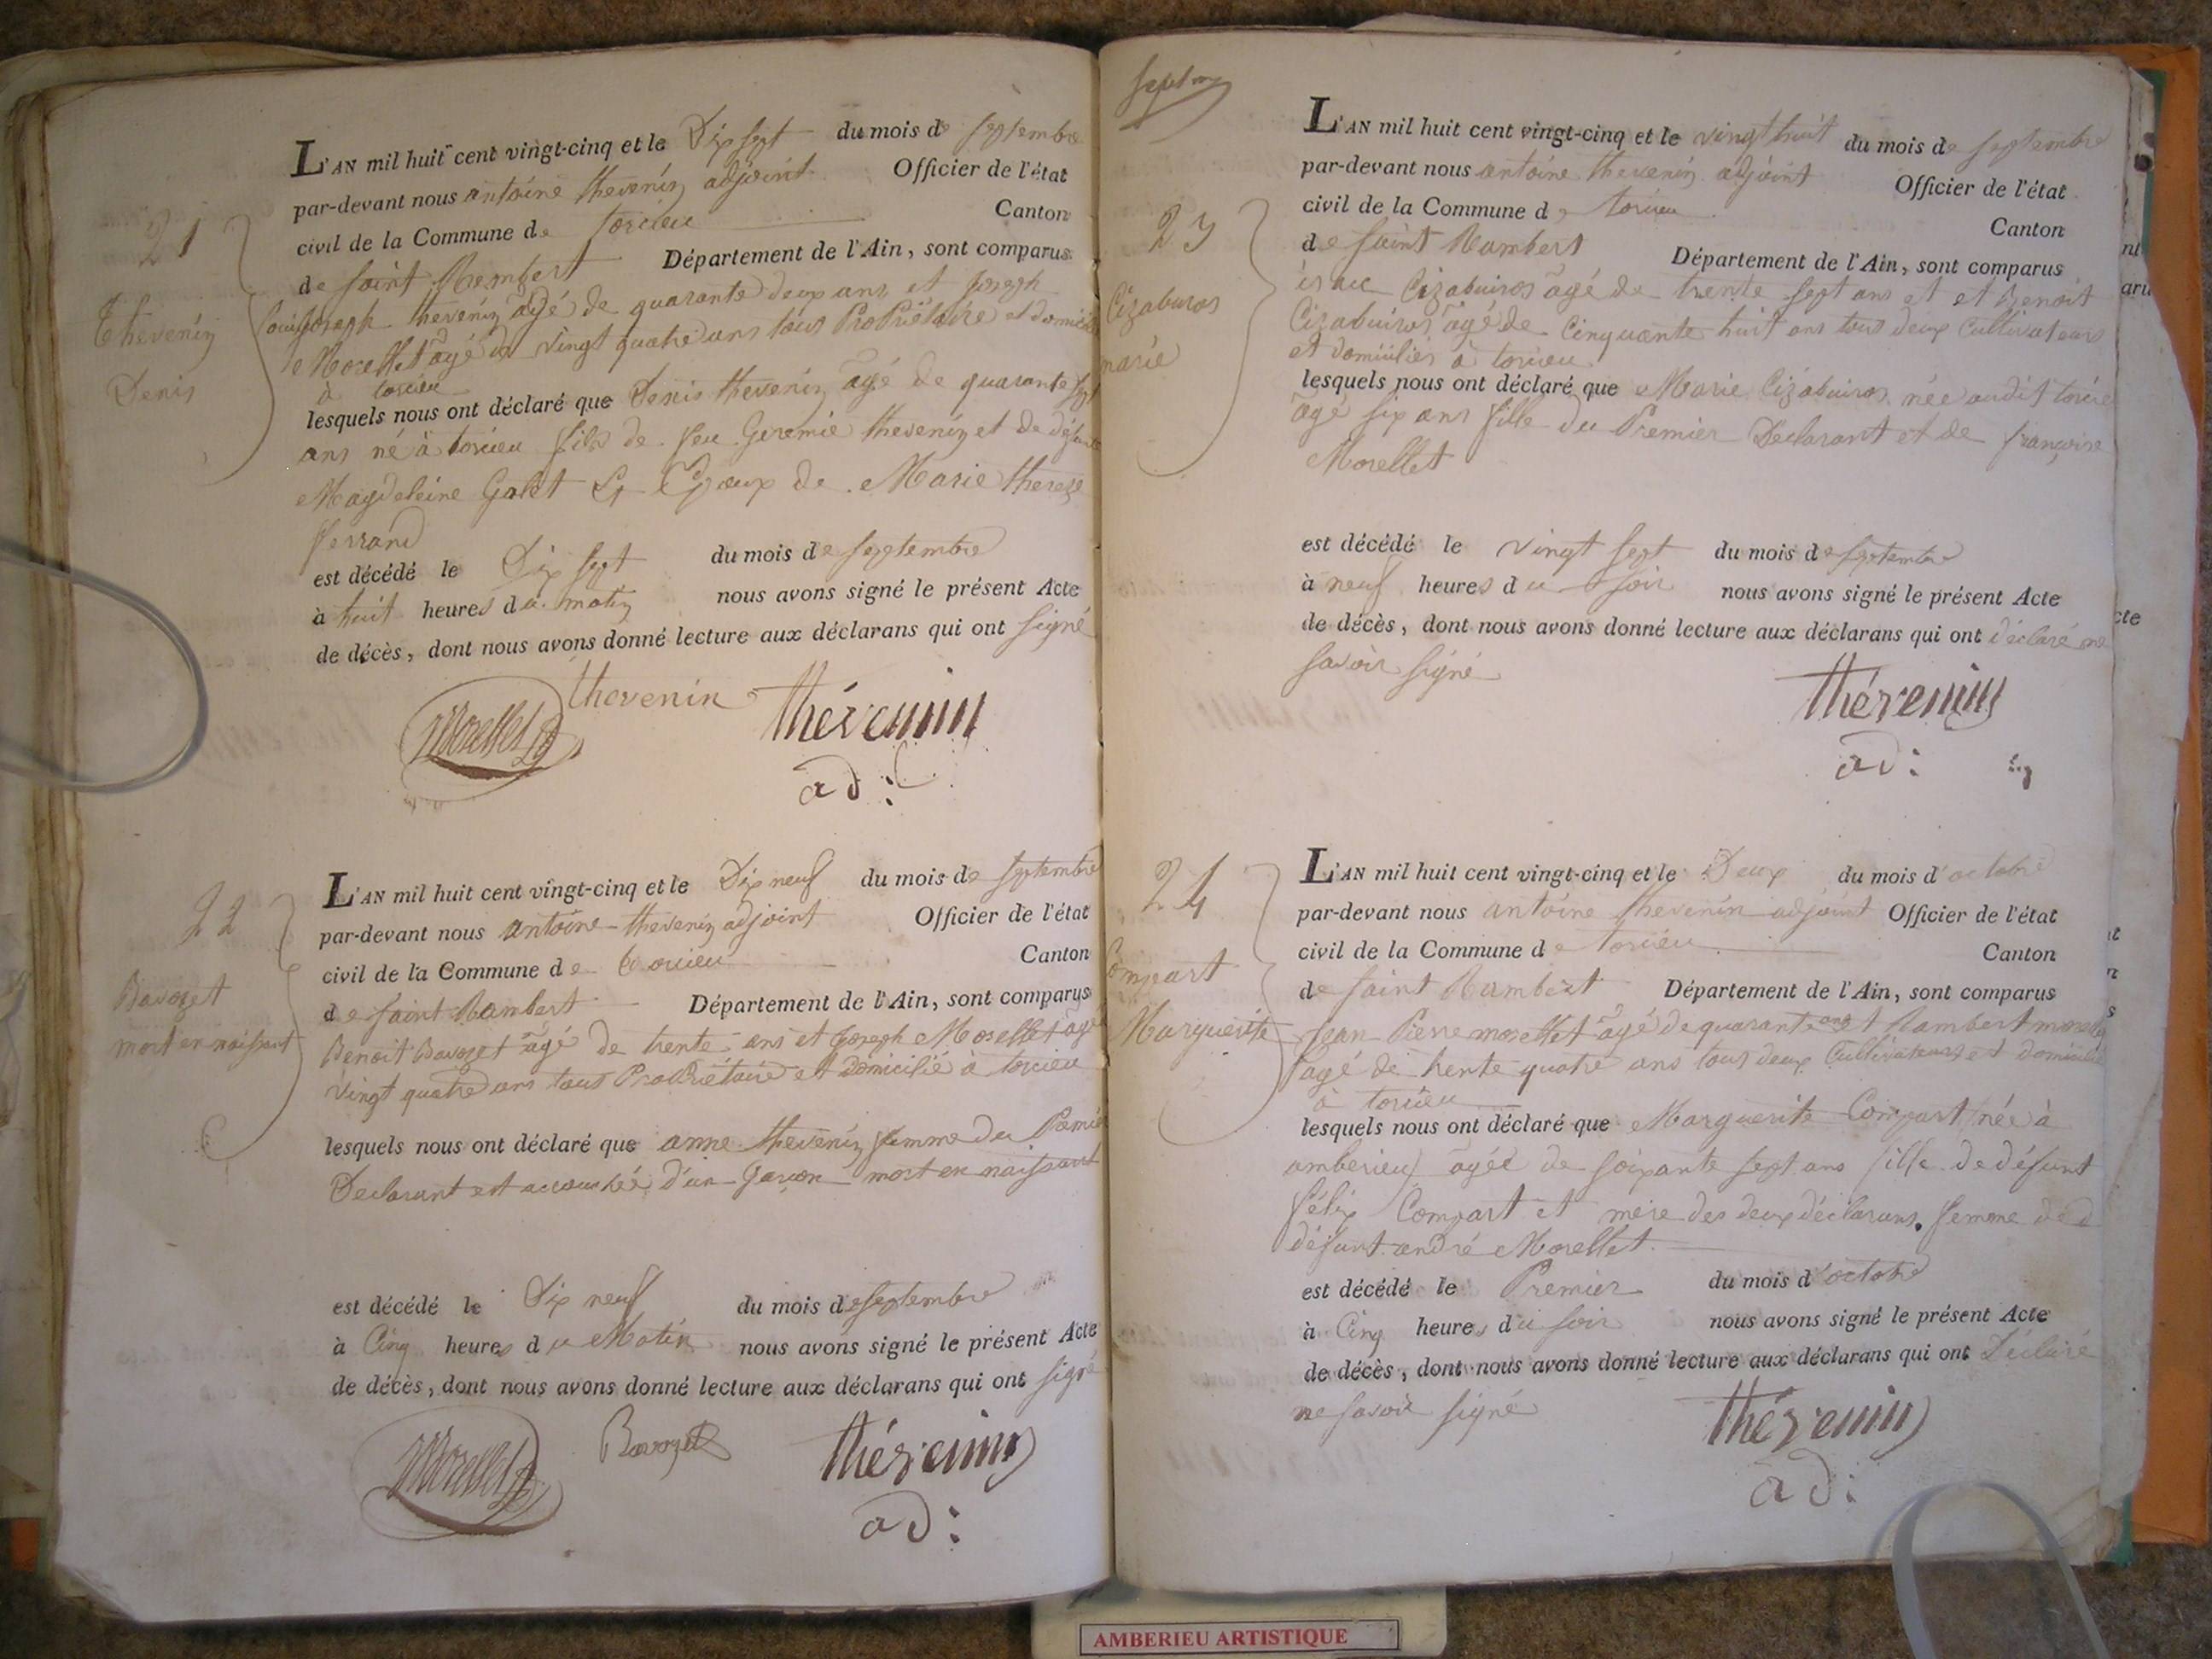 21
Thevenin
Denis
L'AN mil huit cent vingt-cinq et le Dix sept du mois de septembre
par-devant nous antoine thevenin adjoint Officier de l'état
civil de la Commune de torcieu Canton
de saint Rembert Département de l'Ain, sont comparus
Louis Joseph thevenin agé de quarante deux ans et Joseph
Morellet agé de vingt quatre ans tous Propriétaire et domicilié
à torcieu
lesquels nous ont déclaré que Denis thevenin agé de quarante sept
ans né à torcieu fils de feu Geremie thevenin et de défunte
Magdeleine Galet Epoux de Marie therese
ferrand
est décédé le Dix sept du mois de septembre
à huit heures du matin nous avons signé le présent Acte
de décès, dont nous avons donné lecture aux déclarans qui ont signé
Morellet thevenin thévenin
ad:
22
Bavozet
mort en naissant
L'AN mil huit cent vingt-cinq et le Dix neuf du mois de septembre
par-devant nous antoine thevenin adjoint Officier de l'état
civil de la Commune de torcieu Canton
de saint Rambert Département de l'Ain, sont comparus
Benoit Bavozet agé de trente ans et Joseph Morellet agé
vingt quatre ans tous Propriétaire et domicilié à torcieu
lesquels nous ont déclaré que anne thevenin femme du Premier
Declarant est accouchée d'un Garçon mort en naissant
est décédé le Dix neuf du mois de septembre
à Cinq heures du Matin nous avons signé le présent Acte
de décès, dont nous avons donné lecture aux déclarans qui ont signé
Morellet Bavozet thévenin
ad:
septembre
23
Cizabuiros
marie
L'AN mil huit cent vingt-cinq et le vingt huit du mois de septembre
par-devant nous antoine thevenin adjoint Officier de l'état
civil de la Commune de torcieu Canton
de saint Rambert Département de l'Ain, sont comparus
Cizabuiros agé de trente sept ans et et Benoit
Cizabuiros agé de Cinquante huit ans tous deux Cultivateurs
et domiciliés à torcieu
lesquels nous ont déclaré que Marie Cizabuiros née audit torcieu
agé six ans fille du Premier Declarant et de françoise
Morellet
est décédé le vingt sept du mois de septembre
à neuf heures du soir nous avons signé le présent Acte
de décès, dont nous avons donné lecture aux déclarans qui ont déclaré ne
savoir signé
thévenin
ad:
24
Compart
Marguerite
L'AN mil huit cent vingt-cinq et le Deux du mois d'octobre
par-devant nous antoine thevenin adjoint Officier de l'état
civil de la Commune de torcieu Canton
de saint Rambert Département de l'Ain, sont comparus
Jean Pierre morellet agé de quarante ans et Rambert morellet
agé de trente quatre ans tous deux Cultivateurs et domicilié
à torcieu
lesquels nous ont déclaré que Marguerite Compart née à
amberieu agée de soixante sept ans fille de défunt
félix Compart et mere des deux déclarans. femme de d
défunt andré Morellet.
est décédé le Premier du mois d'octobre
à Cinq heures du soir nous avons signé le présent Acte
de décès, dont nous avons donné lecture aux déclarans qui ont Déclaré
ne savoir signé
thévenin
ad:
AMBERIEU ARTISTIQUE